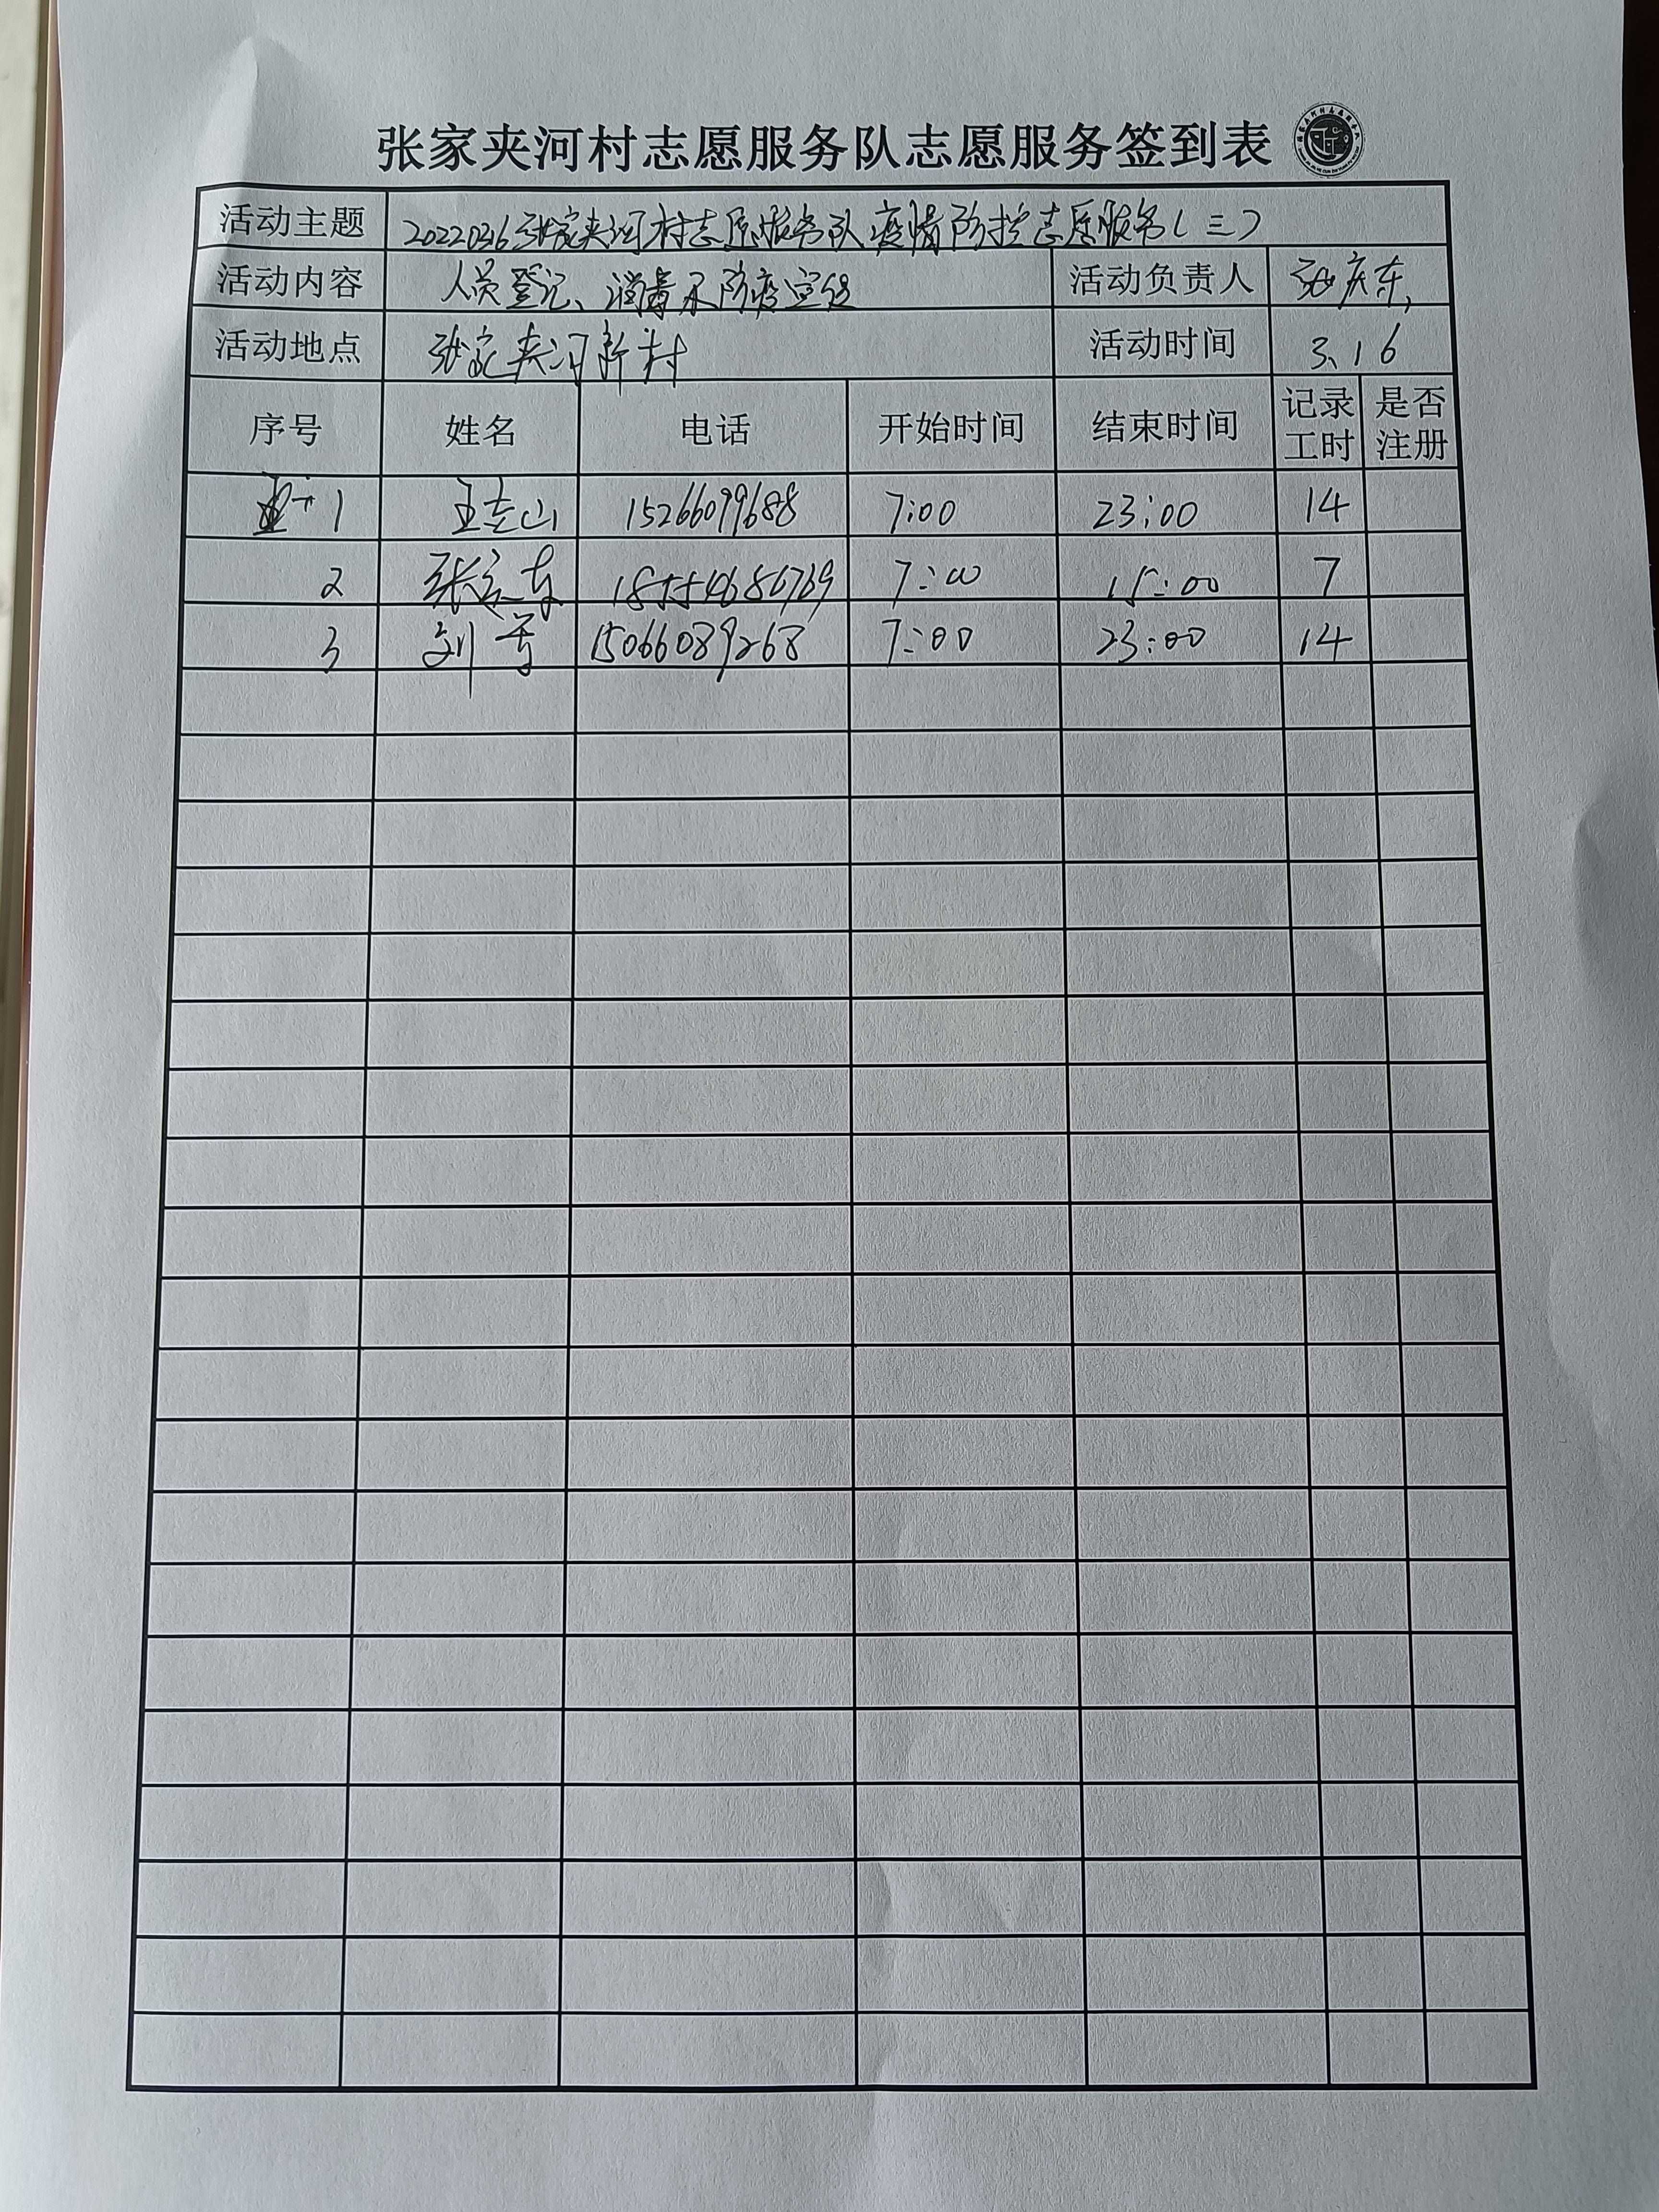 张家夹河村志愿服务队志愿服务签到表
活动主题 20220316张家夹河村志愿服务队疫情防控志愿服务(三)
活动内容 人员登记、消毒及防疫宣传 活动负责人 张庆东
活动地点 张家夹河新村 活动时间 3.16
序号 姓名 电话 开始时间 结束时间 记录工时 是否注册
1 王志山 15266099688 7:00 23:00 14
2 张 东 7:00 15:00 7
3 刘 15066089268 7:00 23:00 14